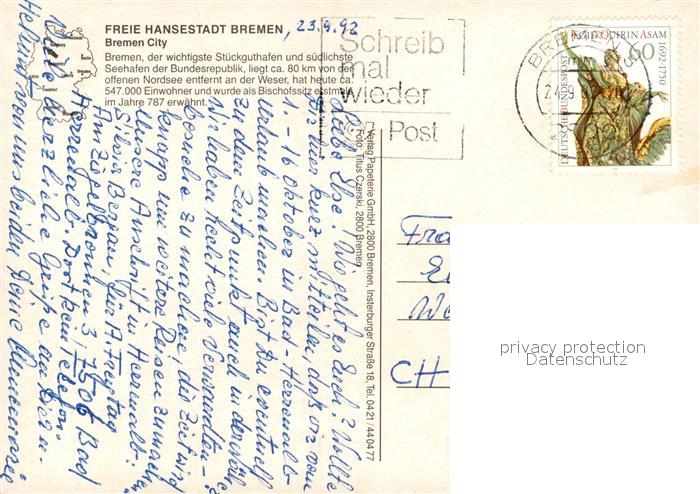 FREIE HANSESTADT BREMEN
Bremen City
Bremen, der wichtigste Stückguthafen und südlichste
Seehafen der Bundesrepublik, liegt ca. 80 km von der
offenen Nordsee entfernt an der Weser, hat heute ca.
547.000 Einwohner und wurde als Bischofssitz erstmals
im Jahre 787 erwähnt.
23.9.92
Liebe Else! Wie geht es Euch? Wollte
kurz mitteilen, daß wir vom
1. - 16 Oktober in Bad-Herrenalb
Urlaub machen. Bist Du eventuell
zu dem Zeitpunkt auch in der Nähe
Wir haben recht viele Verwandten-
besuche zu machen, die Zeit wird
knapp um weitere Reisen zu machen
Unsere Anschrift in Herrenalb:
bei A. Freytag
Am 3 7506 Bad
Herrenalb. Dort kein Telefon.
Viele herzliche Grüße an Dich u.
Helmut von uns beiden Deine Annemarie
Verlag Papeterie GmbH, 2800 Bremen, Insterburger Straße 18, Tel. 04 21 / 44 04 77
Foto: Titus Czerski, 2800 Bremen
Schreib
mal
wieder
Post
BREMEN
COSMAS DAMIAN
EGID QUIRIN ASAM
60
1692-1750
DEUTSCHE BUNDESPOST
CH
privacy protection
Datenschutz